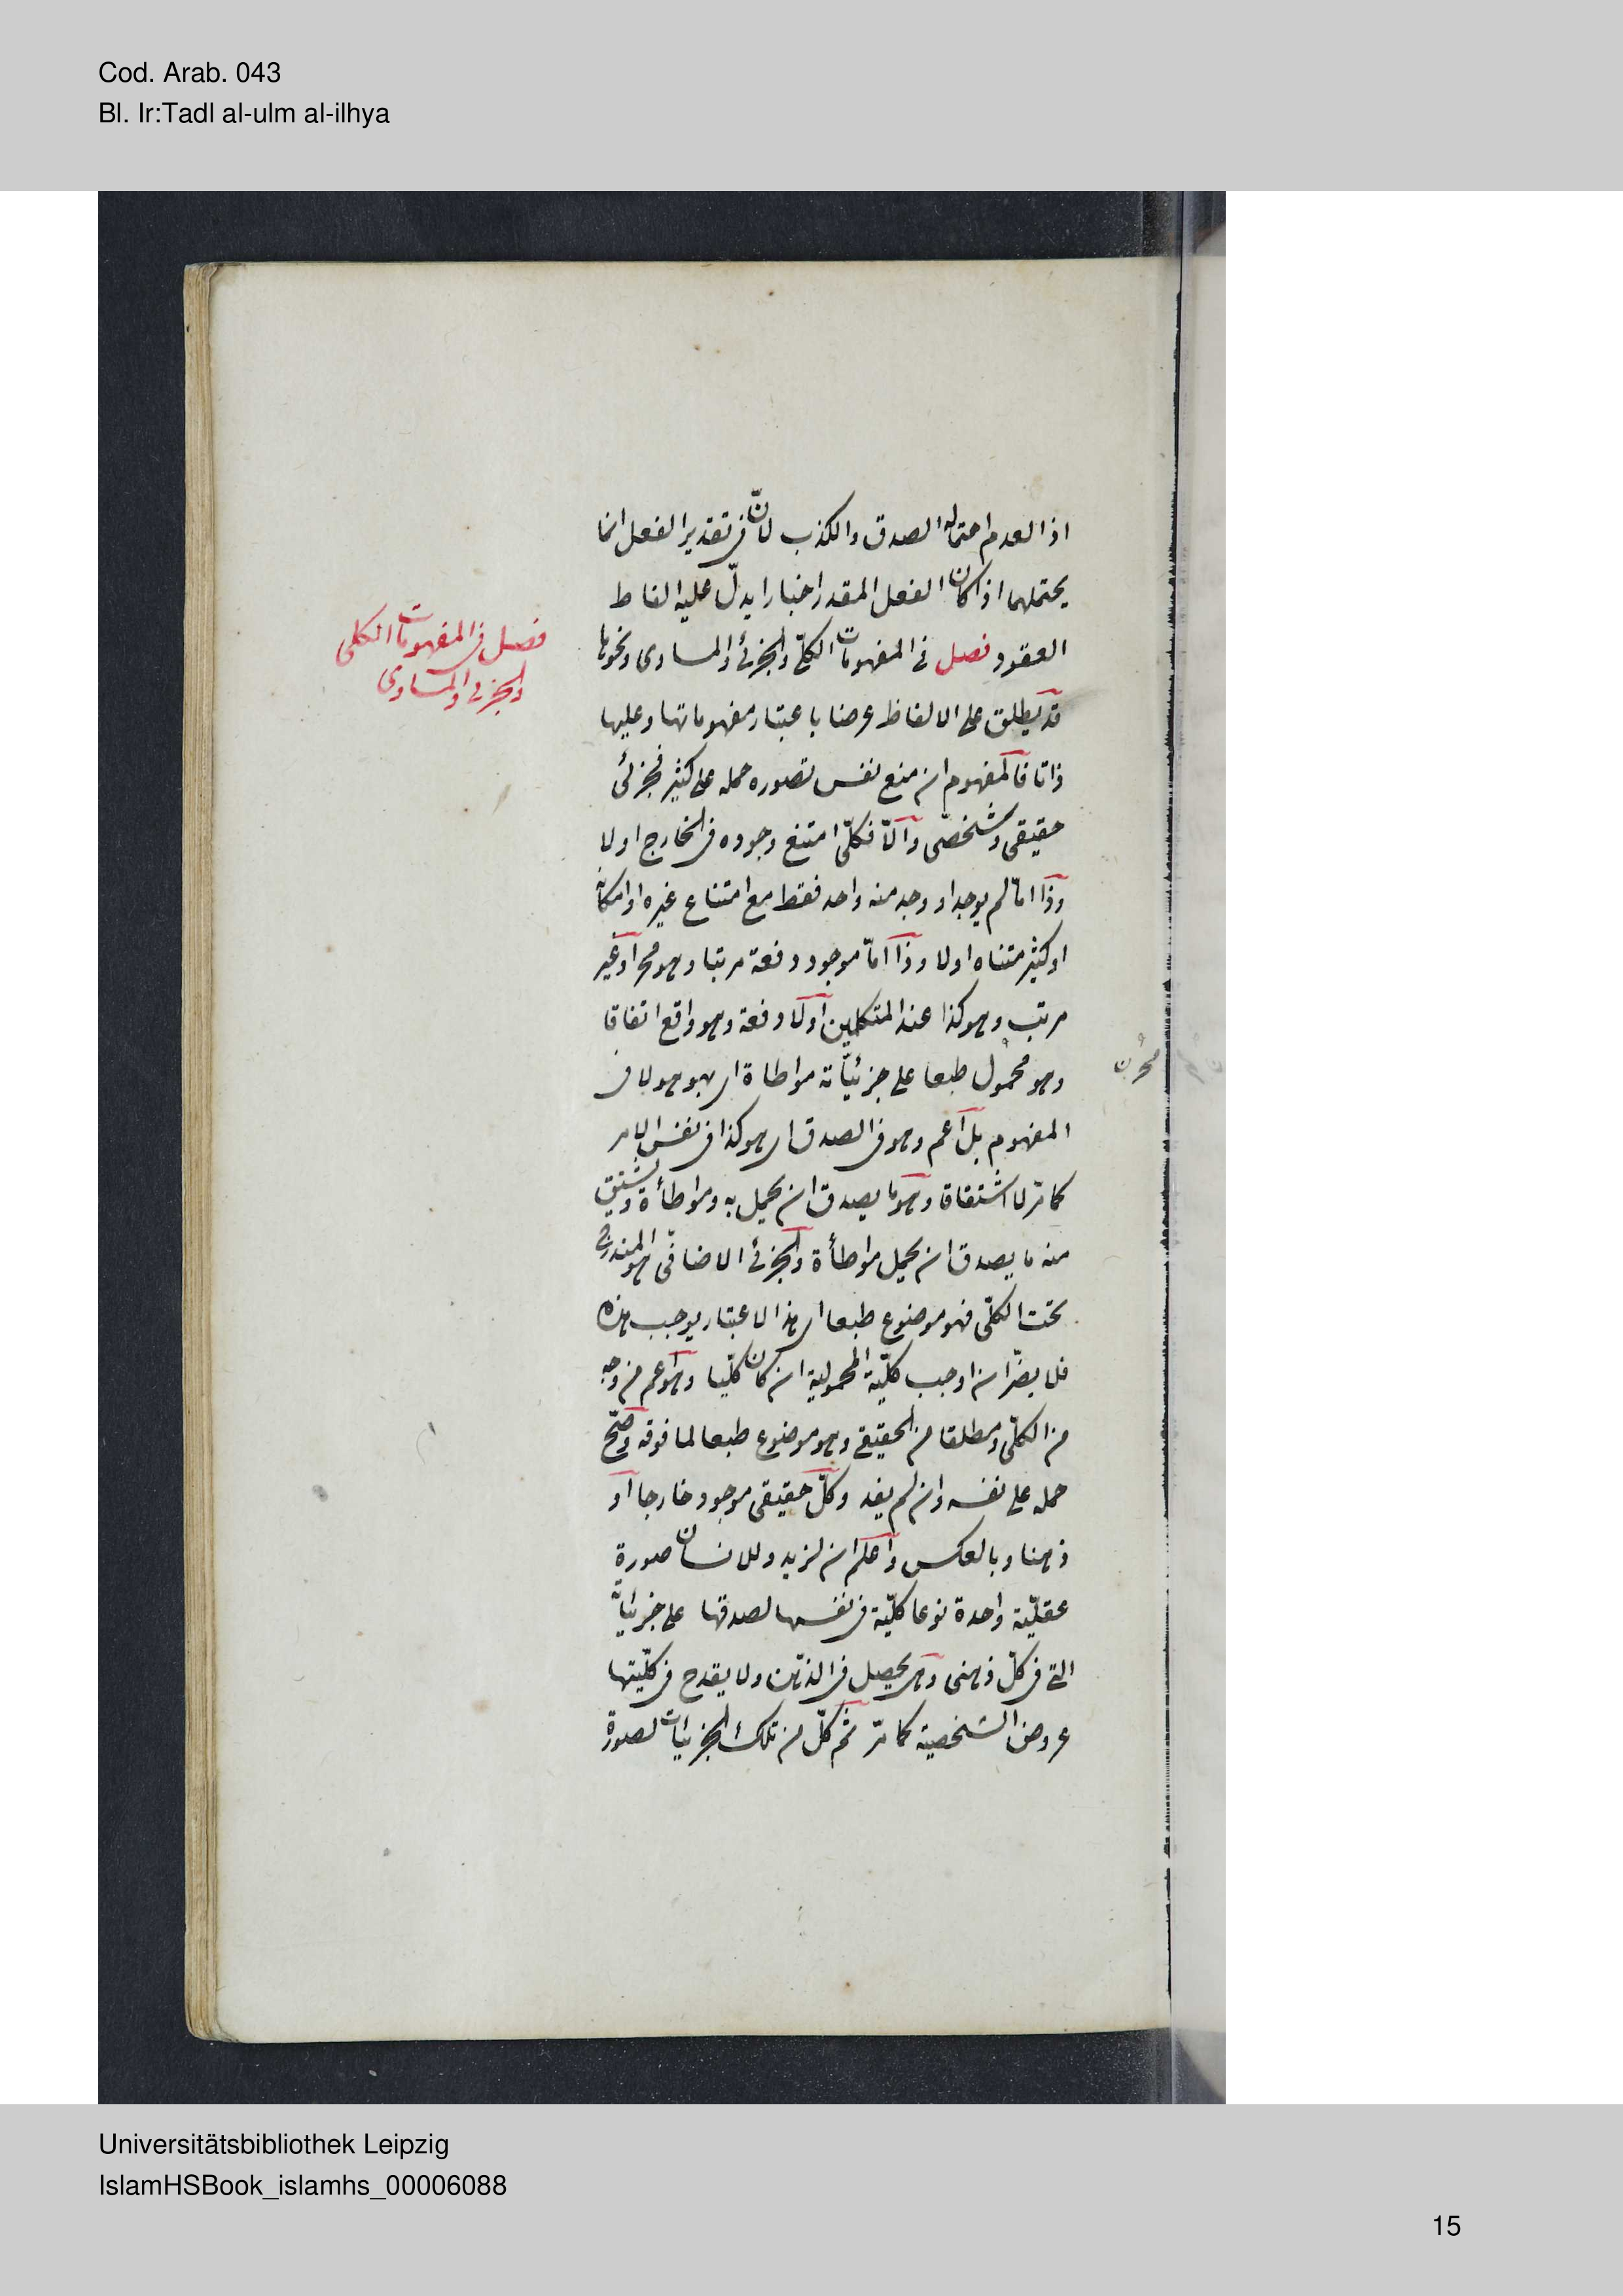 Cod. Arab. 043
Bl. Ir:Tadl al-ulm al-ilhya
اذ العدم احتماله الصدق والكذب لانّ في تقدير الفعل انما
يحتملهما اذا كان الفعل المقدر اخبارا يدلّ عليه الفاظ
العقود فصل في المفهومات الكلّي والجزئي والمساوى ونحوها
فصل في المفهومات الكلى
والجزئي والمساوى
قد يطلق على الالفاظ عرضا باعتبار مفهوماتها وعليها
ذاتا فالمفهوم ان منع نفس تصوره حمله على كثير فجزئى
حقيقى وشخصّى والّا فكلّى امتنع وجوده في الخارج اولا
وذا امّا لم يوجد او وجد منه واحد فقط مع امتناع غيره او امكانه
او كثير متناه اولا وذا امّا موجود دفعة مرتبا وهو مح او غير
مرتب وهو كذا عند المتكلمين او لا دفعة وهو واقع اتفاقا
وهو محمول طبعا على جزئيّاته مواطاة اى بهو هو لا في
المفهوم بل اعم وهو في الصدق اى هو كذا في نفس الامر
كما مرّ لا اشتقاقا وهو ما يصدق ان يحمل به ومواطأة ويشتق
منه ما يصدق ان يحمل مواطأة والجزئي الاضافّى هو المندرج
تحت الكلّى فهو موضوع طبعا اى هذا الاعتبار يوجب هذه
فلا يضرّ ان اوجب كلّيّة المحمولية ان كان كلّيا وهو اعم من وجه
من الكلّى ومطلقا من الحقيقي وهو موضوع طبعا لما فوقه وصّح
حمله على نفسه وان لم يفد وكلّ حقيقى موجود خارجا او
ذهنا وبالعكس واعلم ان لزيد وللانسان صورة
عقليّة واحدة نوعا كليّة في نفسها لصدقها على جزئياته
التى في كلّ ذهنى وهى يحصل في الذهن ولا يقدح في كلّيتها
عروض الشخصية كما مرّ ثم كلّ من تلك الجزئيات لصورة
Universitätsbibliothek Leipzig
IslamHSBook_islamhs_00006088
15